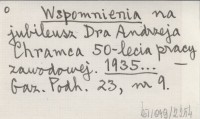 Wspomnienia na
jubileusz Dra Andrzeja
Chramca 50-lecia pracy
zawodowej. 1935... –
Gaz. Podh. 23, nr 9.